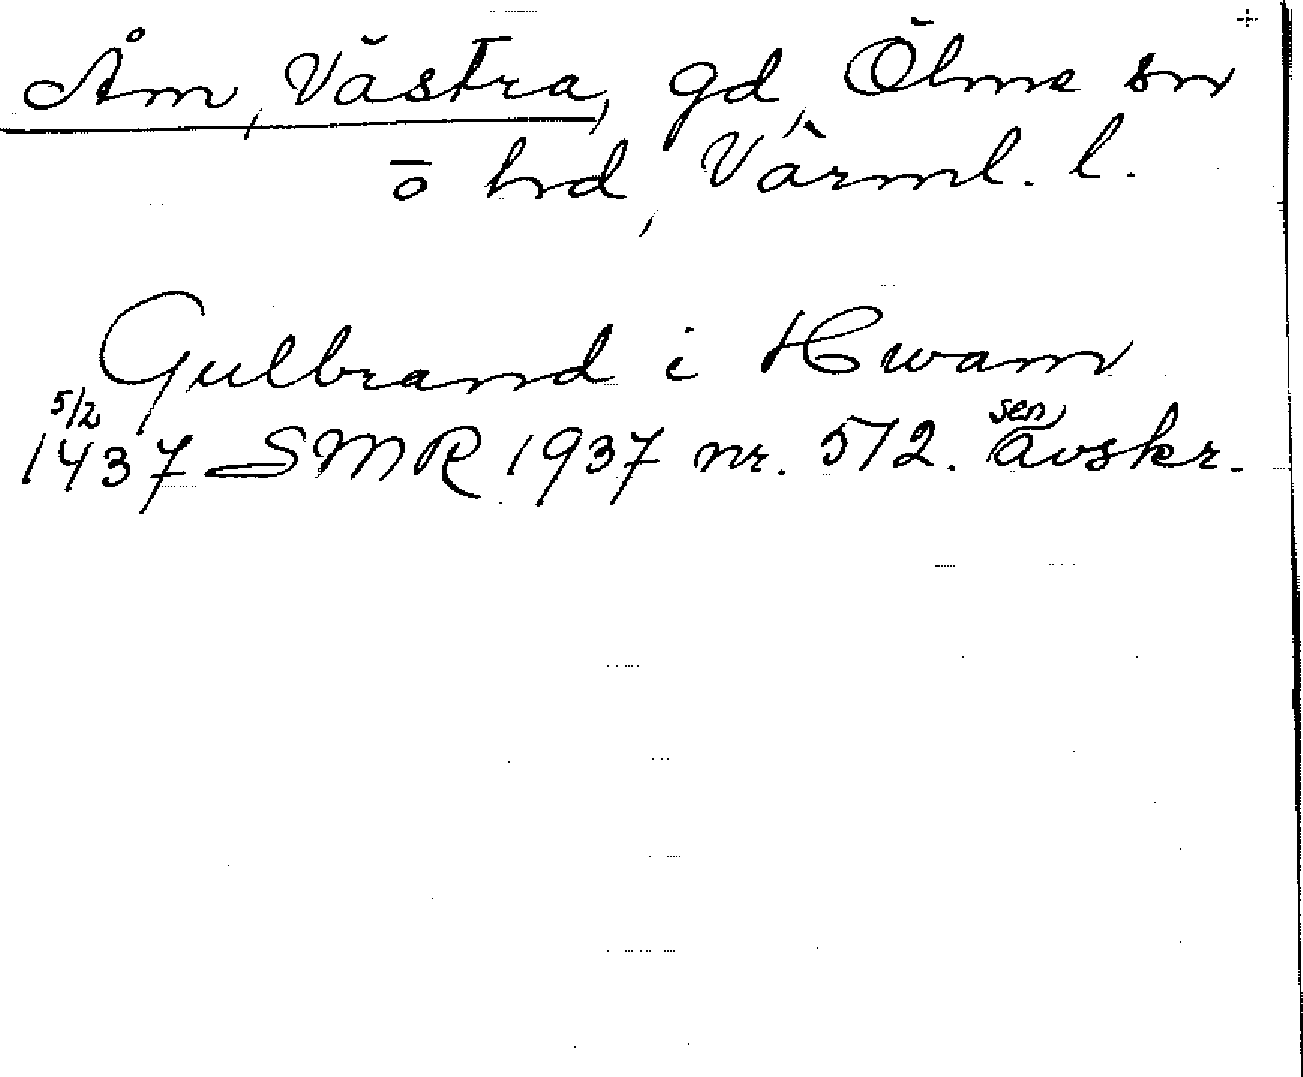 Åm, Västra, gd, Ölme sn
o hd, Värml. l.
Gulbrand i Hwam
5/2
1437 SMR 1937 nr. 572. sen avskr.